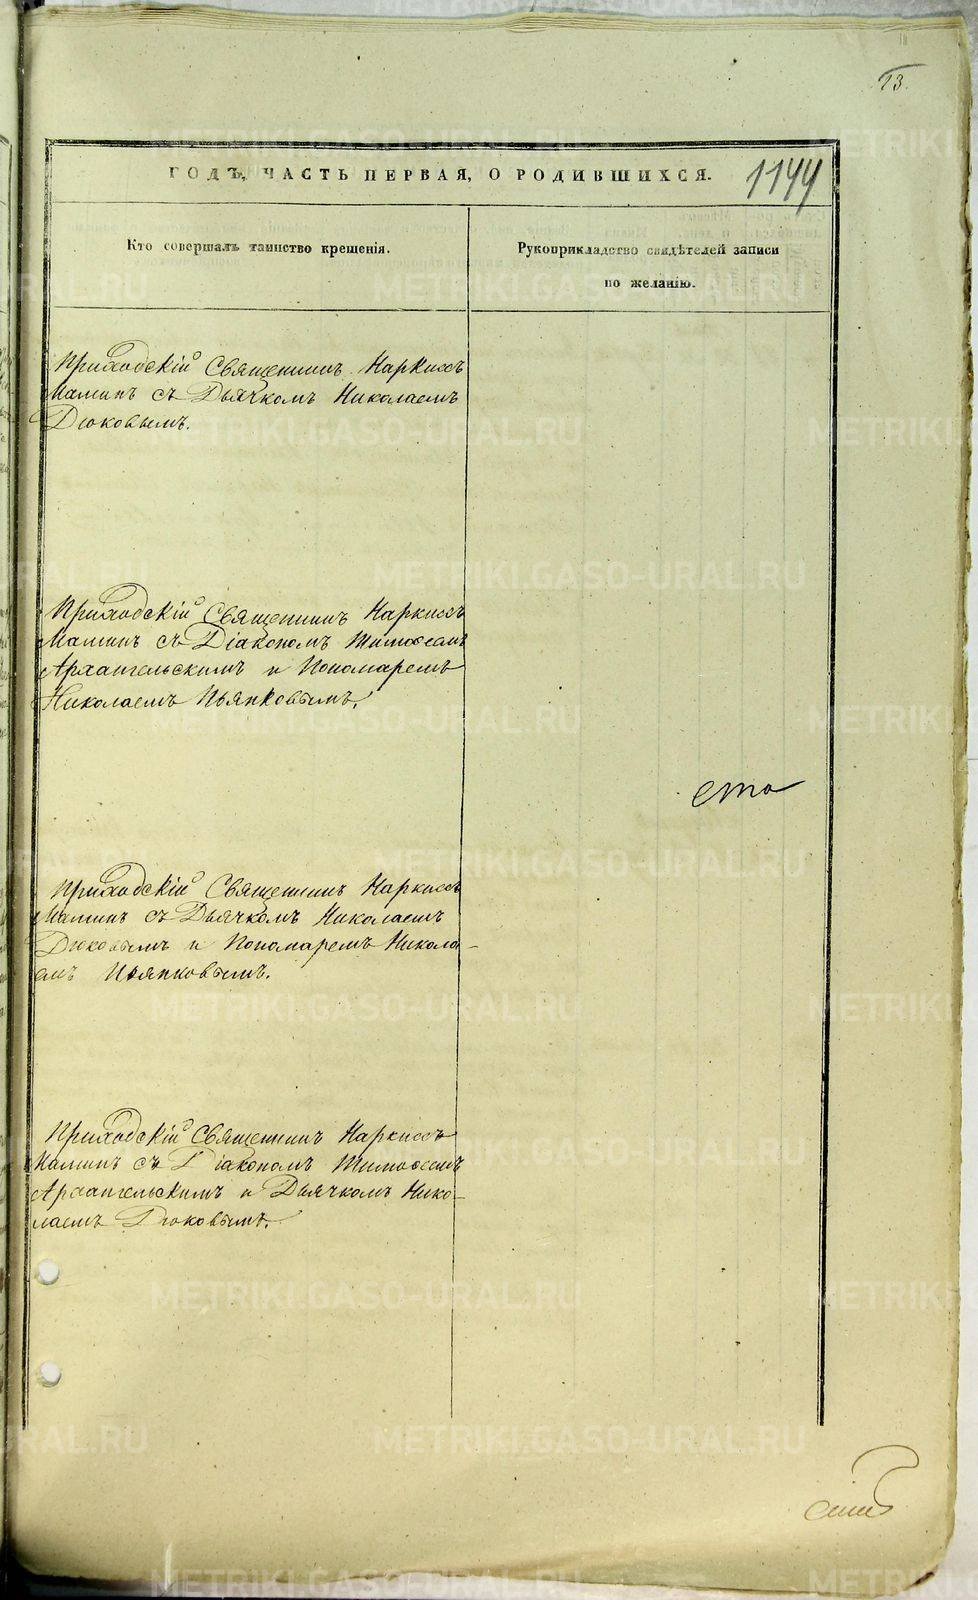 13.
ГОДЪ, ЧАСТЬ ПЕРВАЯ, О РОДИВШИХСЯ. 1144
Кто совершалъ таинство крещенія.
Рукоприкладство свидѣтелей записи
по желанію.
Приходскій Священникъ Наркисъ
Маминъ съ Дьячкомъ Николаемъ
Дюковымъ.
Приходскій Священникъ Наркисъ
Маминъ съ Діакономъ Тимоѳеемъ
Архангельскимъ и Пономаремъ
Николаемъ Пьянковымъ.
сто
Приходскій Священникъ Наркисъ
Маминъ съ Дьячкомъ Николаемъ
Дюковымъ и Пономаремъ Никола-
емъ Пьянковымъ.
Приходскій Священникъ Наркисъ
Маминъ съ Діакономъ Тимоѳеемъ
Архангельскимъ и Дьячкомъ Нико-
лаемъ Дюковымъ.
METRIKI.GASO-URAL.RU